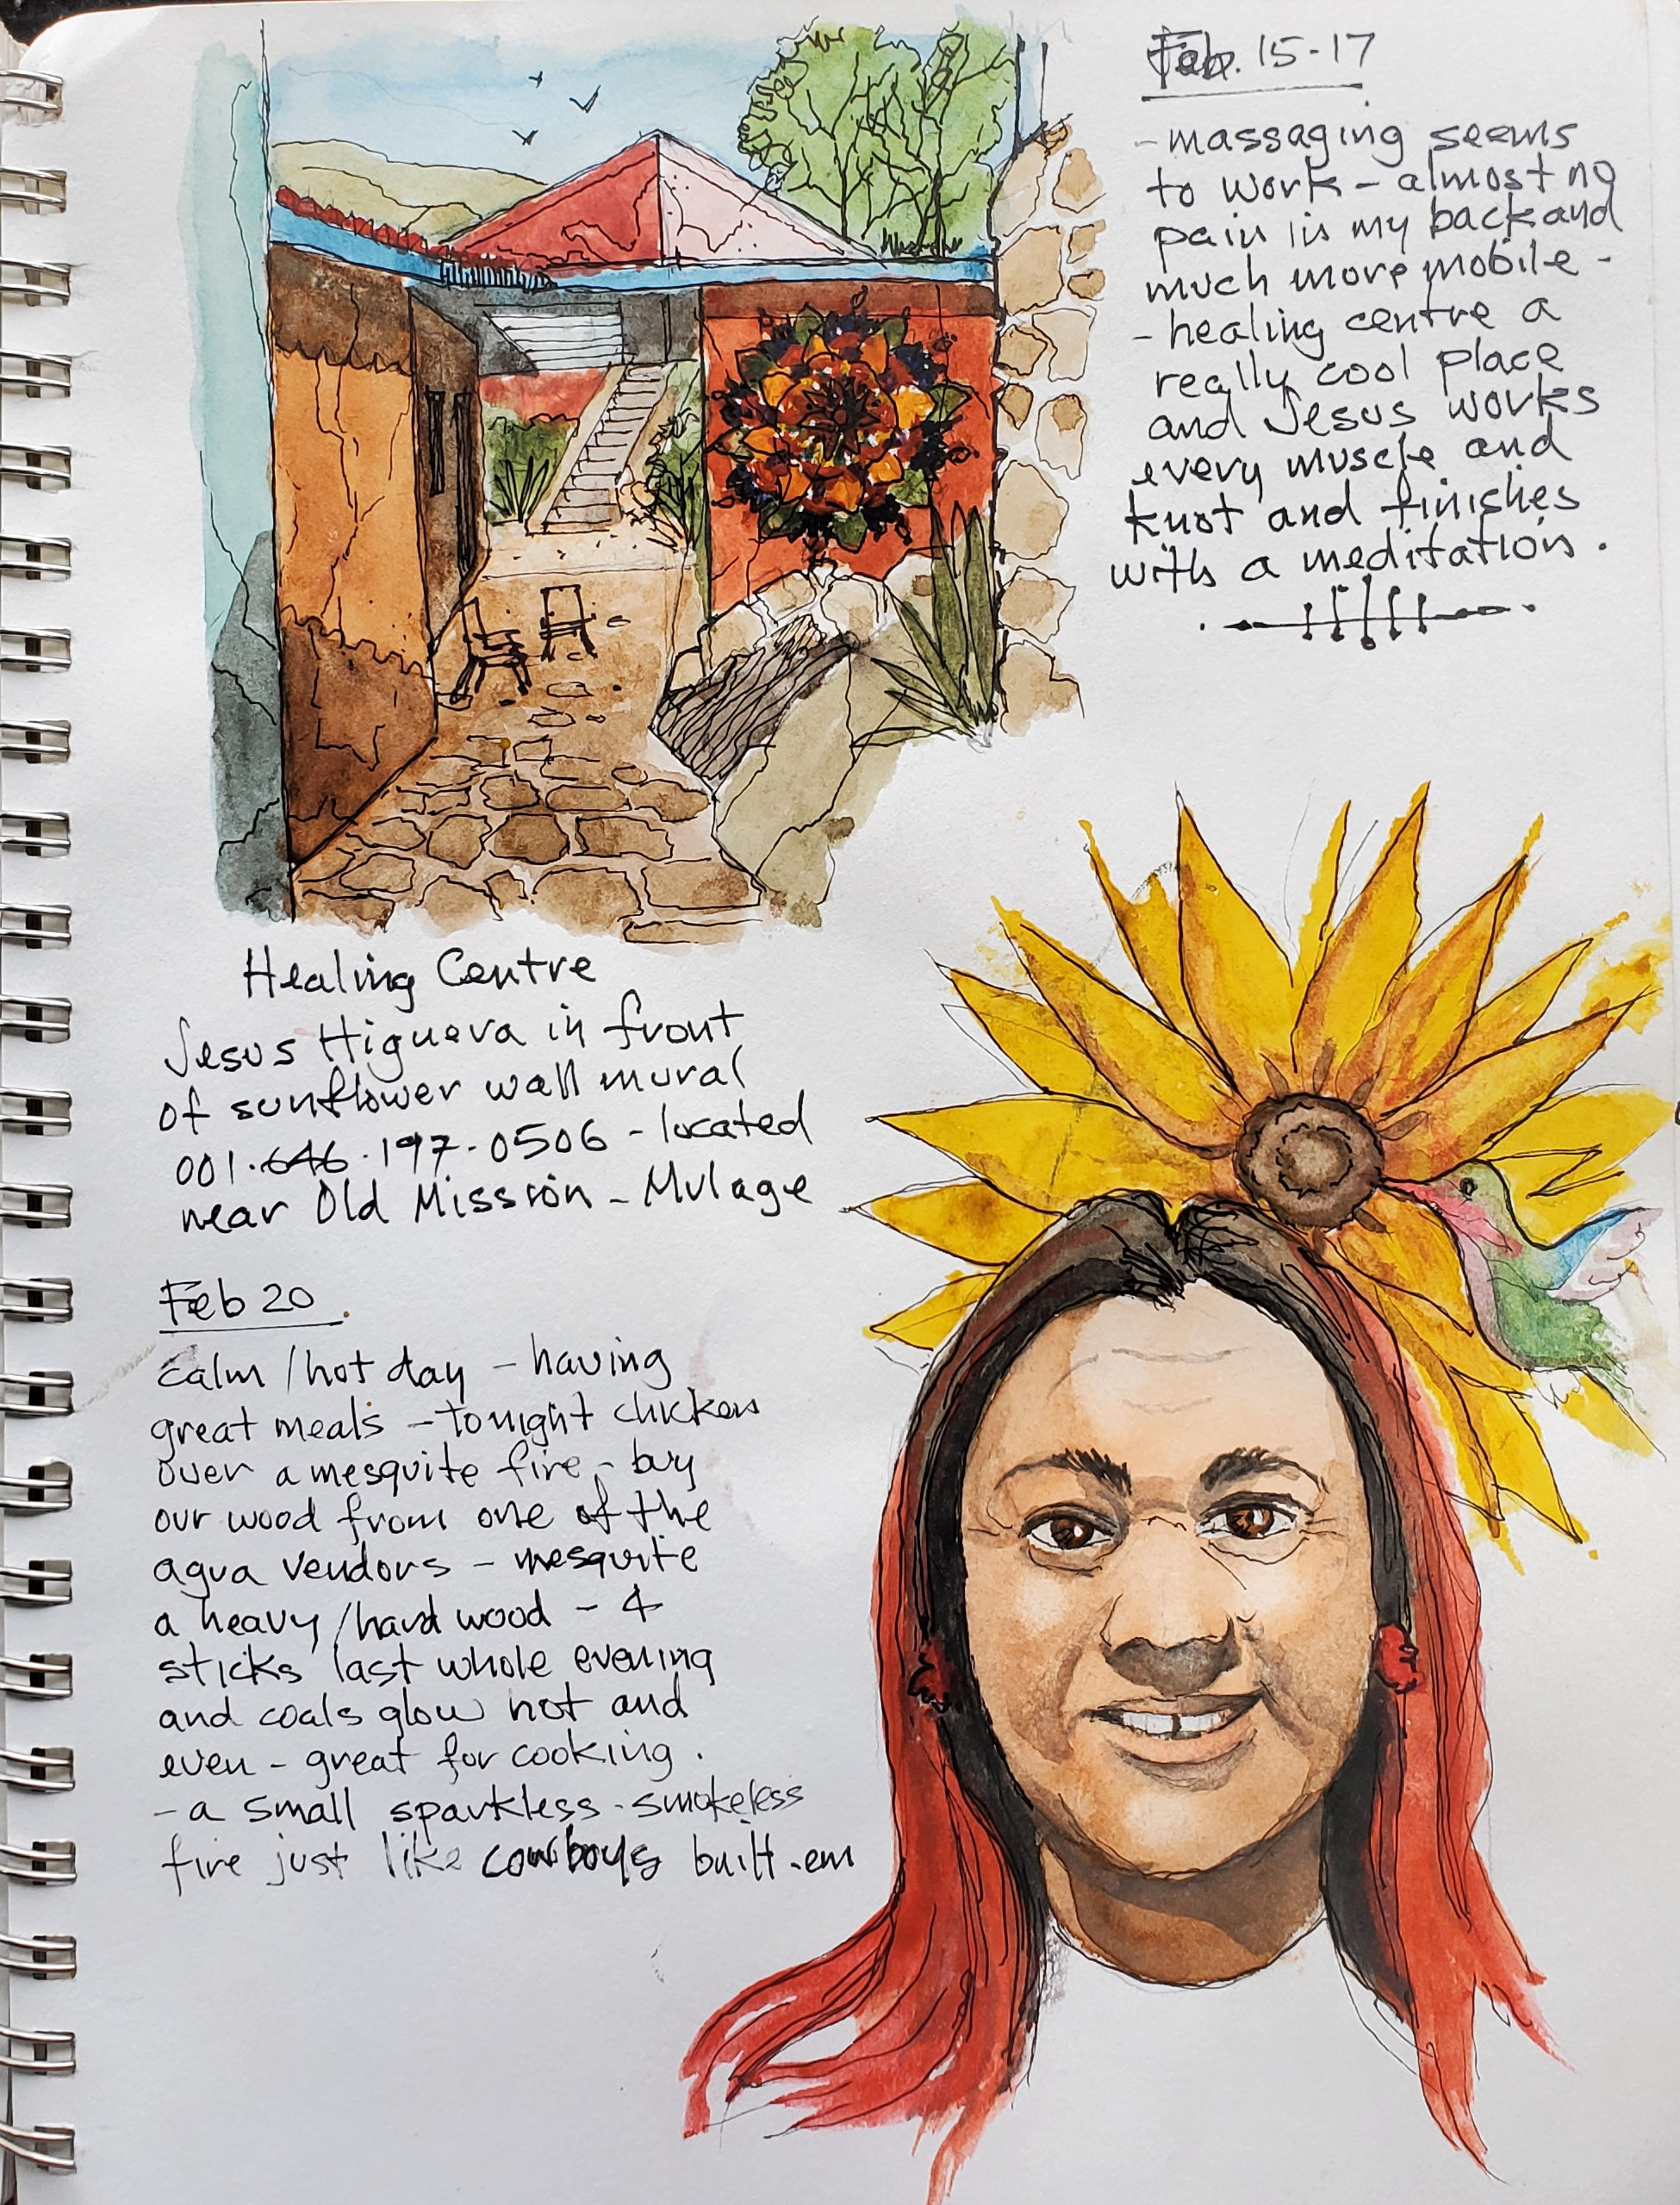 Feb. 15-17
- massaging seems
to work - almost no
pain in my back and
much more mobile -
- healing centre a
really cool place
and Jesus works
every muscle and
knot and finishes
with a meditation.
Healing Centre
Jesus Higuera in front
of sunflower wall mural
001.646.197-0506 - located
near Old Mission - Mulage
Feb 20.
calm/hot day - having
great meals - tonight chicken
over a mesquite fire - buy
our wood from one of the
agua vendors - mesquite
a heavy/hard wood - 4
sticks last whole evening
and coals glow hot and
even - great for cooking.
- a small sparkless - smokeless
fire just like cowboys built-em